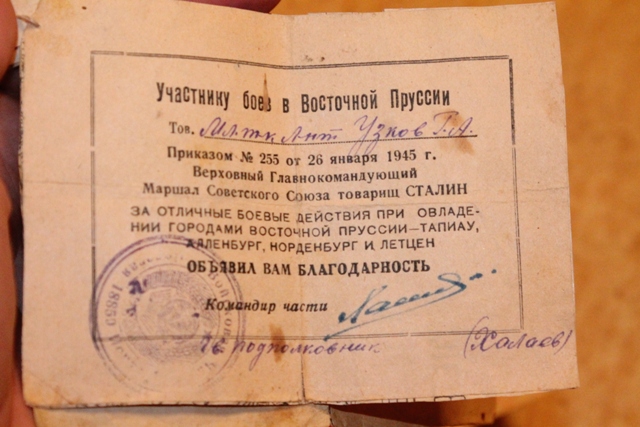 Участнику боев в Восточной Пруссии
Тов. Мл-тк л-нт Узков Г.А.
Приказом № 255 от 26 января 1945 г.
Верховный Главнокомандующий
Маршал Советского Союза товарищ СТАЛИН
ЗА ОТЛИЧНЫЕ БОЕВЫЕ ДЕЙСТВИЯ ПРИ ОВЛАДЕ-
НИИ ГОРОДАМИ ВОСТОЧНОЙ ПРУССИИ—ТАПИАУ,
АЛЛЕНБУРГ, НОРДЕНБУРГ И ЛЕТЦЕН
ОБЪЯВИЛ ВАМ БЛАГОДАРНОСТЬ
Командир части
Гв. подполковник (Халаев)